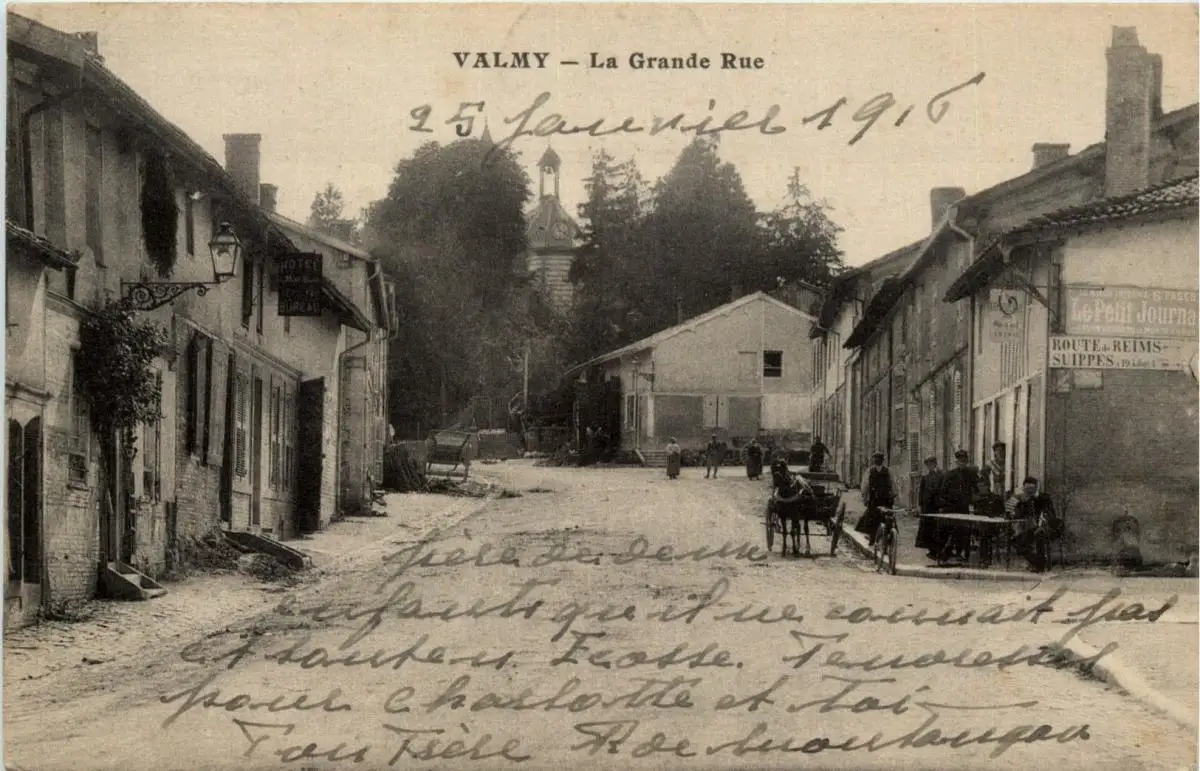 VALMY — La Grande Rue
25 Janvier 1916
HOTEL
BUREAU
Le Petit Journal
ROUTE de REIMS
SUIPPES
père de deux
enfants qu'il ne connait pas
et sont en Ecosse. Tendresses
pour Charlotte et toi —
Ton Frère